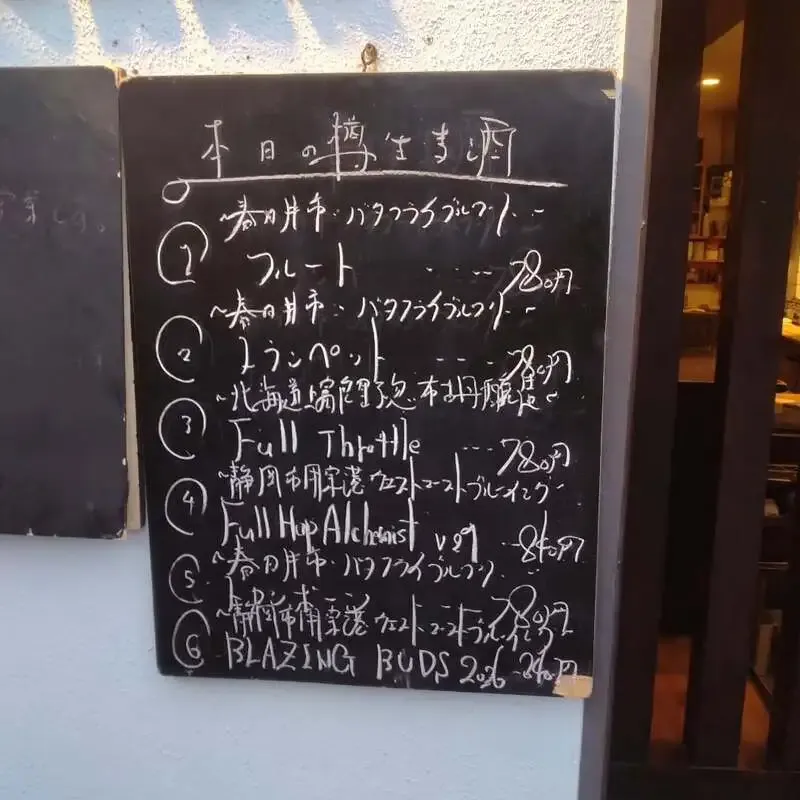 本日の樽生麦酒
~春日井市・バタフライブルワリー~
① フルート ....780円
~春日井市・バタフライブルワリー~
② トランペット ....780円
~北海道上富良野 忽布古丹醸造~
③ Full Throttle ...780円
~静岡市用宗港 ウエストコーストブルーイング~
④ Full Hop Alchemist v29 840円
~春日井市・バタフライブルワリー~
⑤ トロンボーン 780円
~静岡市用宗港 ウエストコーストブルーイング~
⑥ BLAZING BUDS 2026 840円